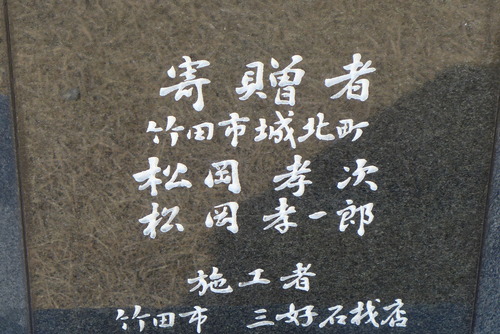 寄贈者
竹田市城北町
松岡孝次
松岡孝一郎
施工者
竹田市 三好石材店